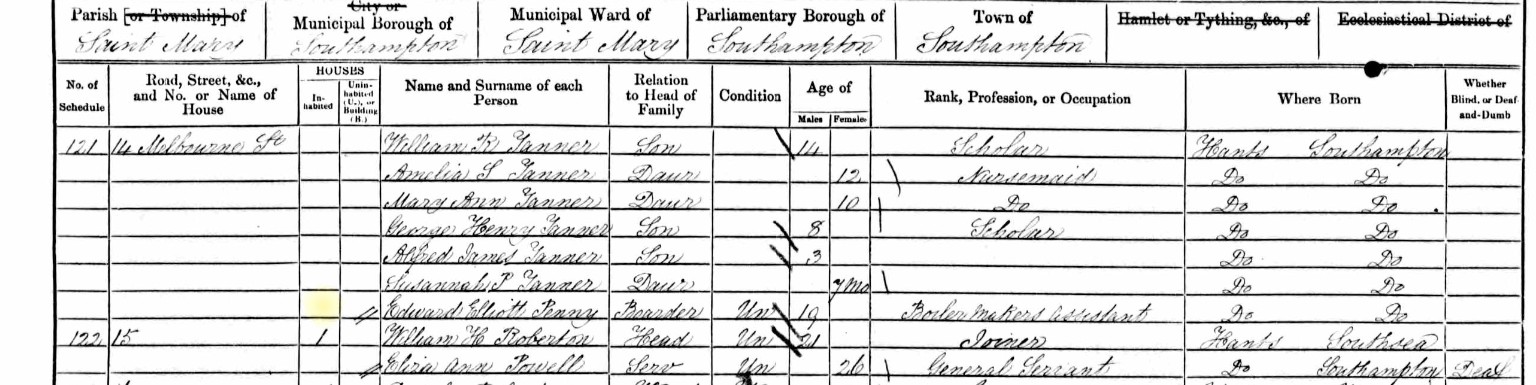 Parish [or Township] of City or Municipal Borough of Municipal Ward of Parliamentary Borough of Town of Hamlet or Tything, &c., of Ecclesiastical District of
Saint Mary Southampton Saint Mary Southampton Southampton
No. of Schedule Road, Street, &c., and No. or Name of House HOUSES In-habited Unin-habited (U.), or Building (B.) Name and Surname of each Person Relation to Head of Family Condition Age of Males Females Rank, Profession, or Occupation Where Born Whether Blind, or Deaf-and-Dumb
121 14 Melbourne St William R Tanner Son 14 Scholar Hants Southampton
Amelia S Tanner Daur 12 Nursemaid Do Do
Mary Ann Tanner Daur 10 Do Do Do
George Henry Tanner Son 8 Scholar Do Do
Alfred James Tanner Son 3 Do Do
Susannah P Tanner Daur 7 Mo Do Do
Edward Elliott Penny Boarder Un 19 Boiler Makers Assistant Do Do
122 15 1 William H Roberton Head Un 21 Joiner Hants Southsea
Eliza Ann Powell Serv Un 26 General Servant Do Southampton Deaf